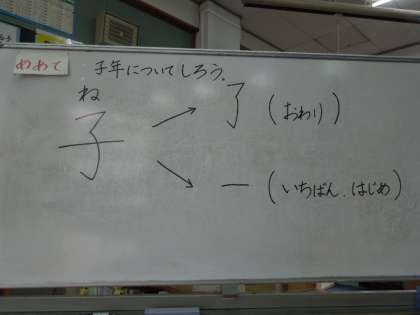 めあて
子年についてしろう。
ね
子
了(おわり)
一(いちばん、はじめ)